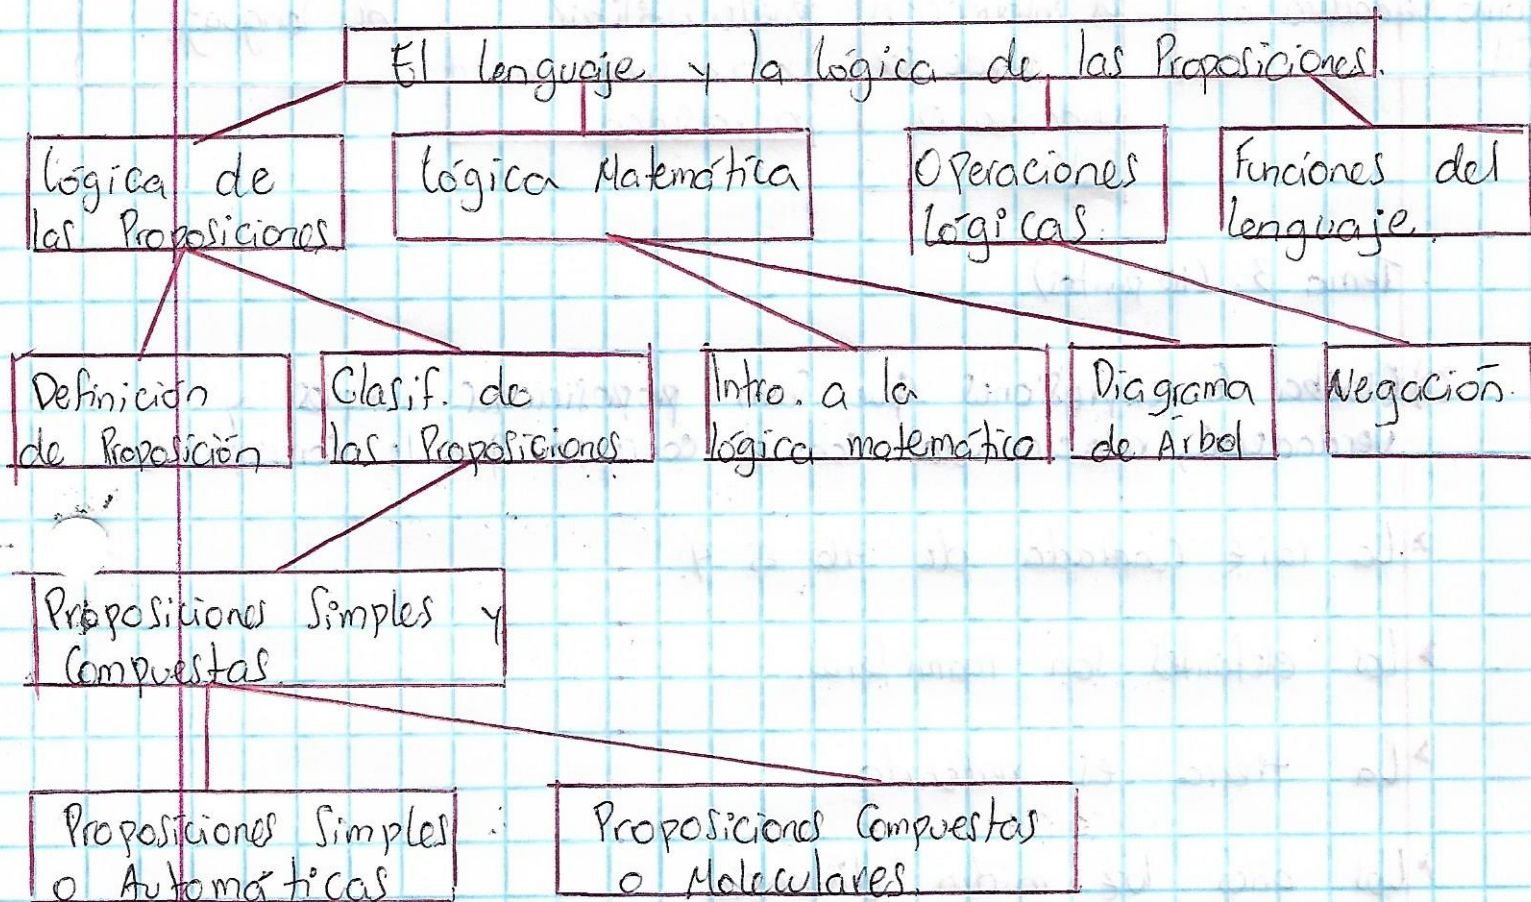 El lenguaje y la lógica de las Proposiciones.
Lógica de
las Proposiciones
Lógica Matemática
Operaciones
Lógicas.
Funciones del
lenguaje.
Definición
de Proposición
Clasif. de
las Proposiciones
Intro. a la
lógica matemática
Diagrama
de Árbol
Negación.
Proposiciones Simples y
Compuestas.
Proposiciones Simples
o Automáticas
Proposiciones Compuestas
o Moleculares.